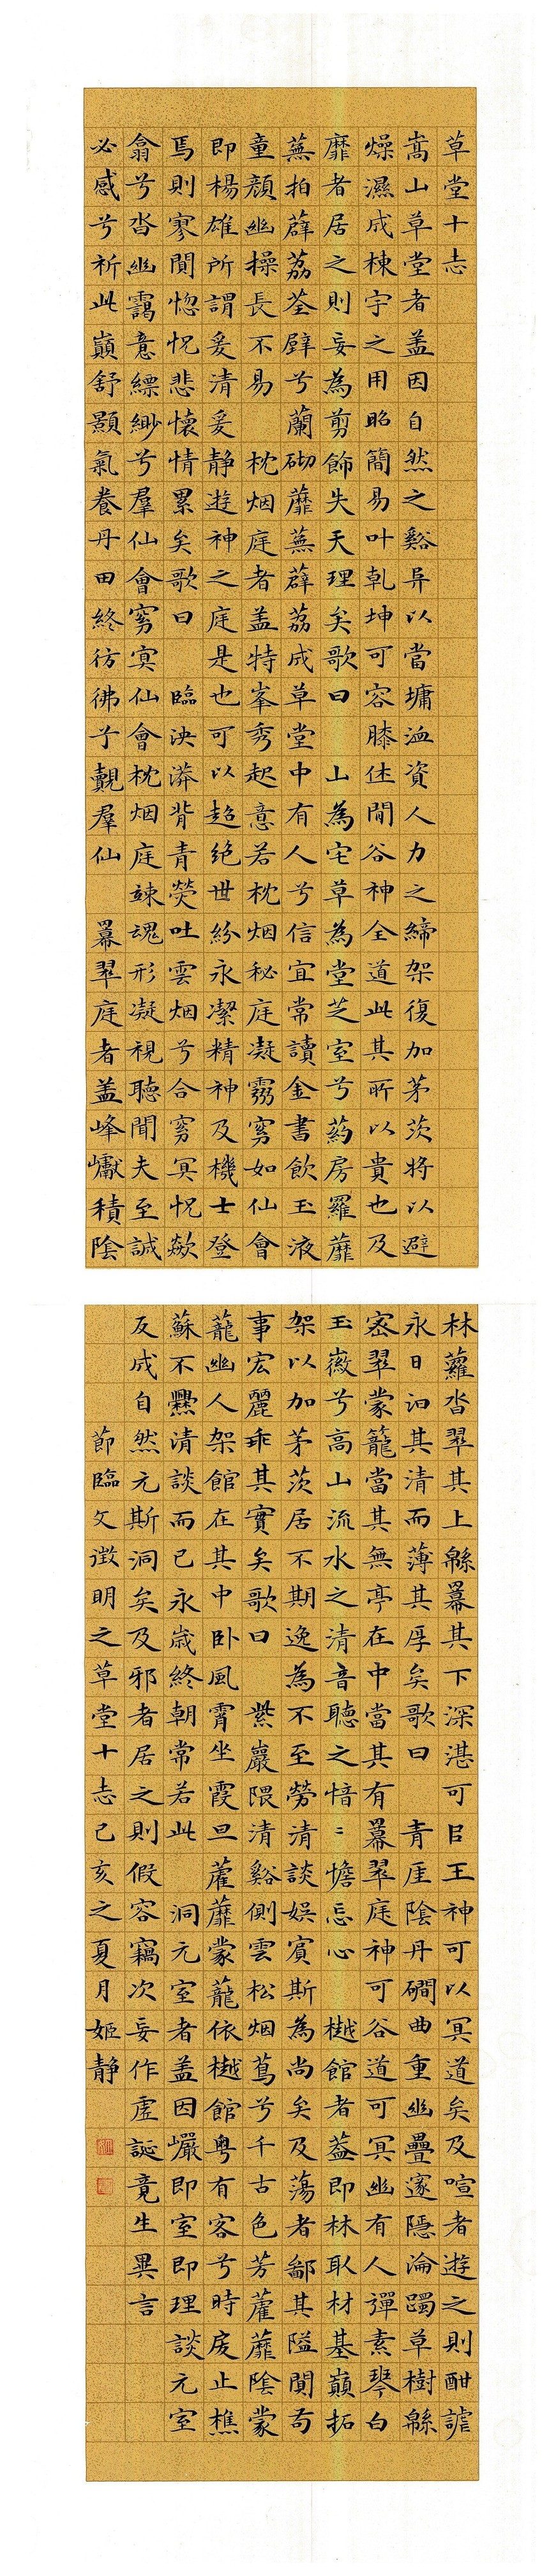 草堂十志
嵩山草堂者盖因自然之谿异以當墉洫資人力之締架復加茅茨将以避
燥濕成棟宇之用昭簡易叶乹坤可容膝休閒谷神全道此其所以貴也及
靡者居之則妄為剪飾失天理矣歌曰 山為宅草為堂芝室兮葯房羅蘼
蕪拍薜荔荃壁兮蘭砌蘼蕪薜荔成草堂中有人兮信宜常讀金書飲玉液
童顔幽操長不易 枕烟庭者盖特峯秀起意若枕烟秘庭凝霧窈如仙會
即楊雄所謂爰清爰静遊神之庭是也可以超絶世紛永潔精神及機士登
焉則寥闃惚怳悲懷情累矣歌曰 臨泱漭背青熒吐雲烟兮合窈冥怳歘
翕兮沓幽靄意縹緲兮羣仙會窈冥仙會枕烟庭竦魂形凝視聽聞夫至誠
必感兮祈此巔舒顥氣養丹田終彷彿兮覿羣仙 羃翠庭者盖峰巘積陰
林蘿沓翠其上緜羃其下深湛可目王神可以冥道矣及喧者遊之則酣謔
永日汩其清而薄其厚矣歌曰 青厓陰丹磵曲重幽疊邃隱淪躅草樹緜
密翠蒙籠當其無亭在中當其有 羃翠庭神可谷道可冥幽有人彈素琴白
玉徽兮高山流水之清音聽之愔〻憺忘心 樾館者葢即林取材基巔拓
架以加茅茨居不期逸為不至勞清談娱賓斯為尚矣及蕩者鄙其隘閴苟
事宏麗乖其實矣歌曰 紫巖隈清谿側雲松烟蔦兮千古色芳藿蘼陰蒙
蘢幽人架館在其中卧風霄坐霞旦 藿蘼蒙蘢依樾館粤有客兮時戾止樵
蘇不爨清談而已永歲終朝常若此 洞元室者盖因巖即室即理談元室
反成自然元斯洞矣及邪者居之則假容竊次妄作虛誕竟生異言
節臨文徵明之草堂十志己亥之夏月姬静